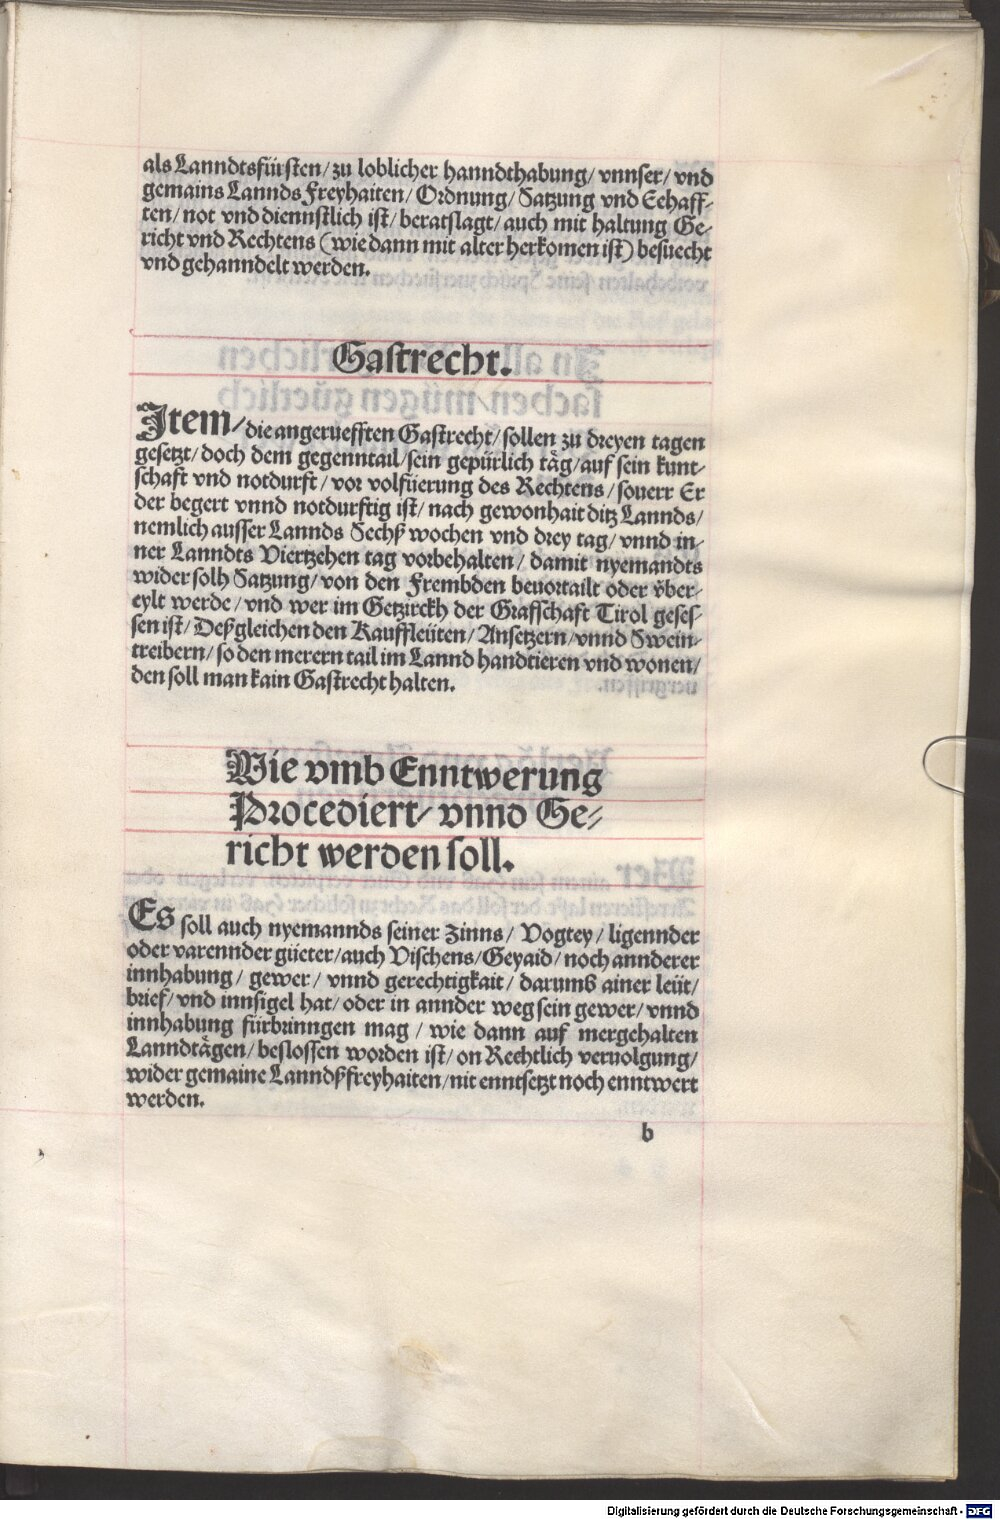 als Lanndtsfürsten/ zu loblicher hanndthabung/ vnnser/ vnd
gemains Lannds Freyhaiten/ Ordnung/ Satzung vnd Eehaff-
ten/ not vnd diennstlich ist/ beratslagt/ auch mit haltung Ge-
richt vnd Rechtens (wie dann mit alter herkomen ist) besuecht
vnd gehanndelt werden.
Gastrecht.
Item/ die angeruefften Gastrecht/ sollen zu dreyen tagen
gesetzt/ doch dem gegenntail/ sein gepürlich täg/ auf sein kunt-
schaft vnd notdurft/ vor volfüerung des Rechtens/ souerr Er
der begert vnnd notdurftig ist/ nach gewonhait ditz Lannds/
nemlich ausser Lannds Sechß wochen vnd drey tag/ vnnd in-
ner Lanndts Viertzehen tag vorbehalten/ damit nyemandts
wider solh Satzung/ von den Frembden beuortailt oder vͤber-
eylt werde/ vnd wer im Getzirckh der Grafschaft Tirol geses-
sen ist/ Deßgleichen den Kauffleüten/ Ansetzern/ vnnd Swein-
treibern/ so den merern tail im Lannd handtieren vnd wonen/
den soll man kain Gastrecht halten.
Wie vmb Enntwerung
Procediert/ vnnd Ge-
richt werden soll.
Es soll auch nyemannds seiner Zinns/ Vogtey/ ligennder
oder varennder güeter/ auch Vischens/ Geyaid/ noch annderer
innhabung/ gewer/ vnnd gerechtigkait/ darumb ainer leüt/
brief/ vnd innsigel hat/ oder in annder weg sein gewer/ vnnd
innhabung fürbrinngen mag/ wie dann auf mergehalten
Lanndtägen/ beslossen worden ist/ on Rechtlich veruolgung/
wider gemaine Lanndßfreyhaiten/ nit enntsetzt noch enntwert
werden.
b
Digitalisierung gefördert durch die Deutsche Forschungsgemeinschaft - DFG